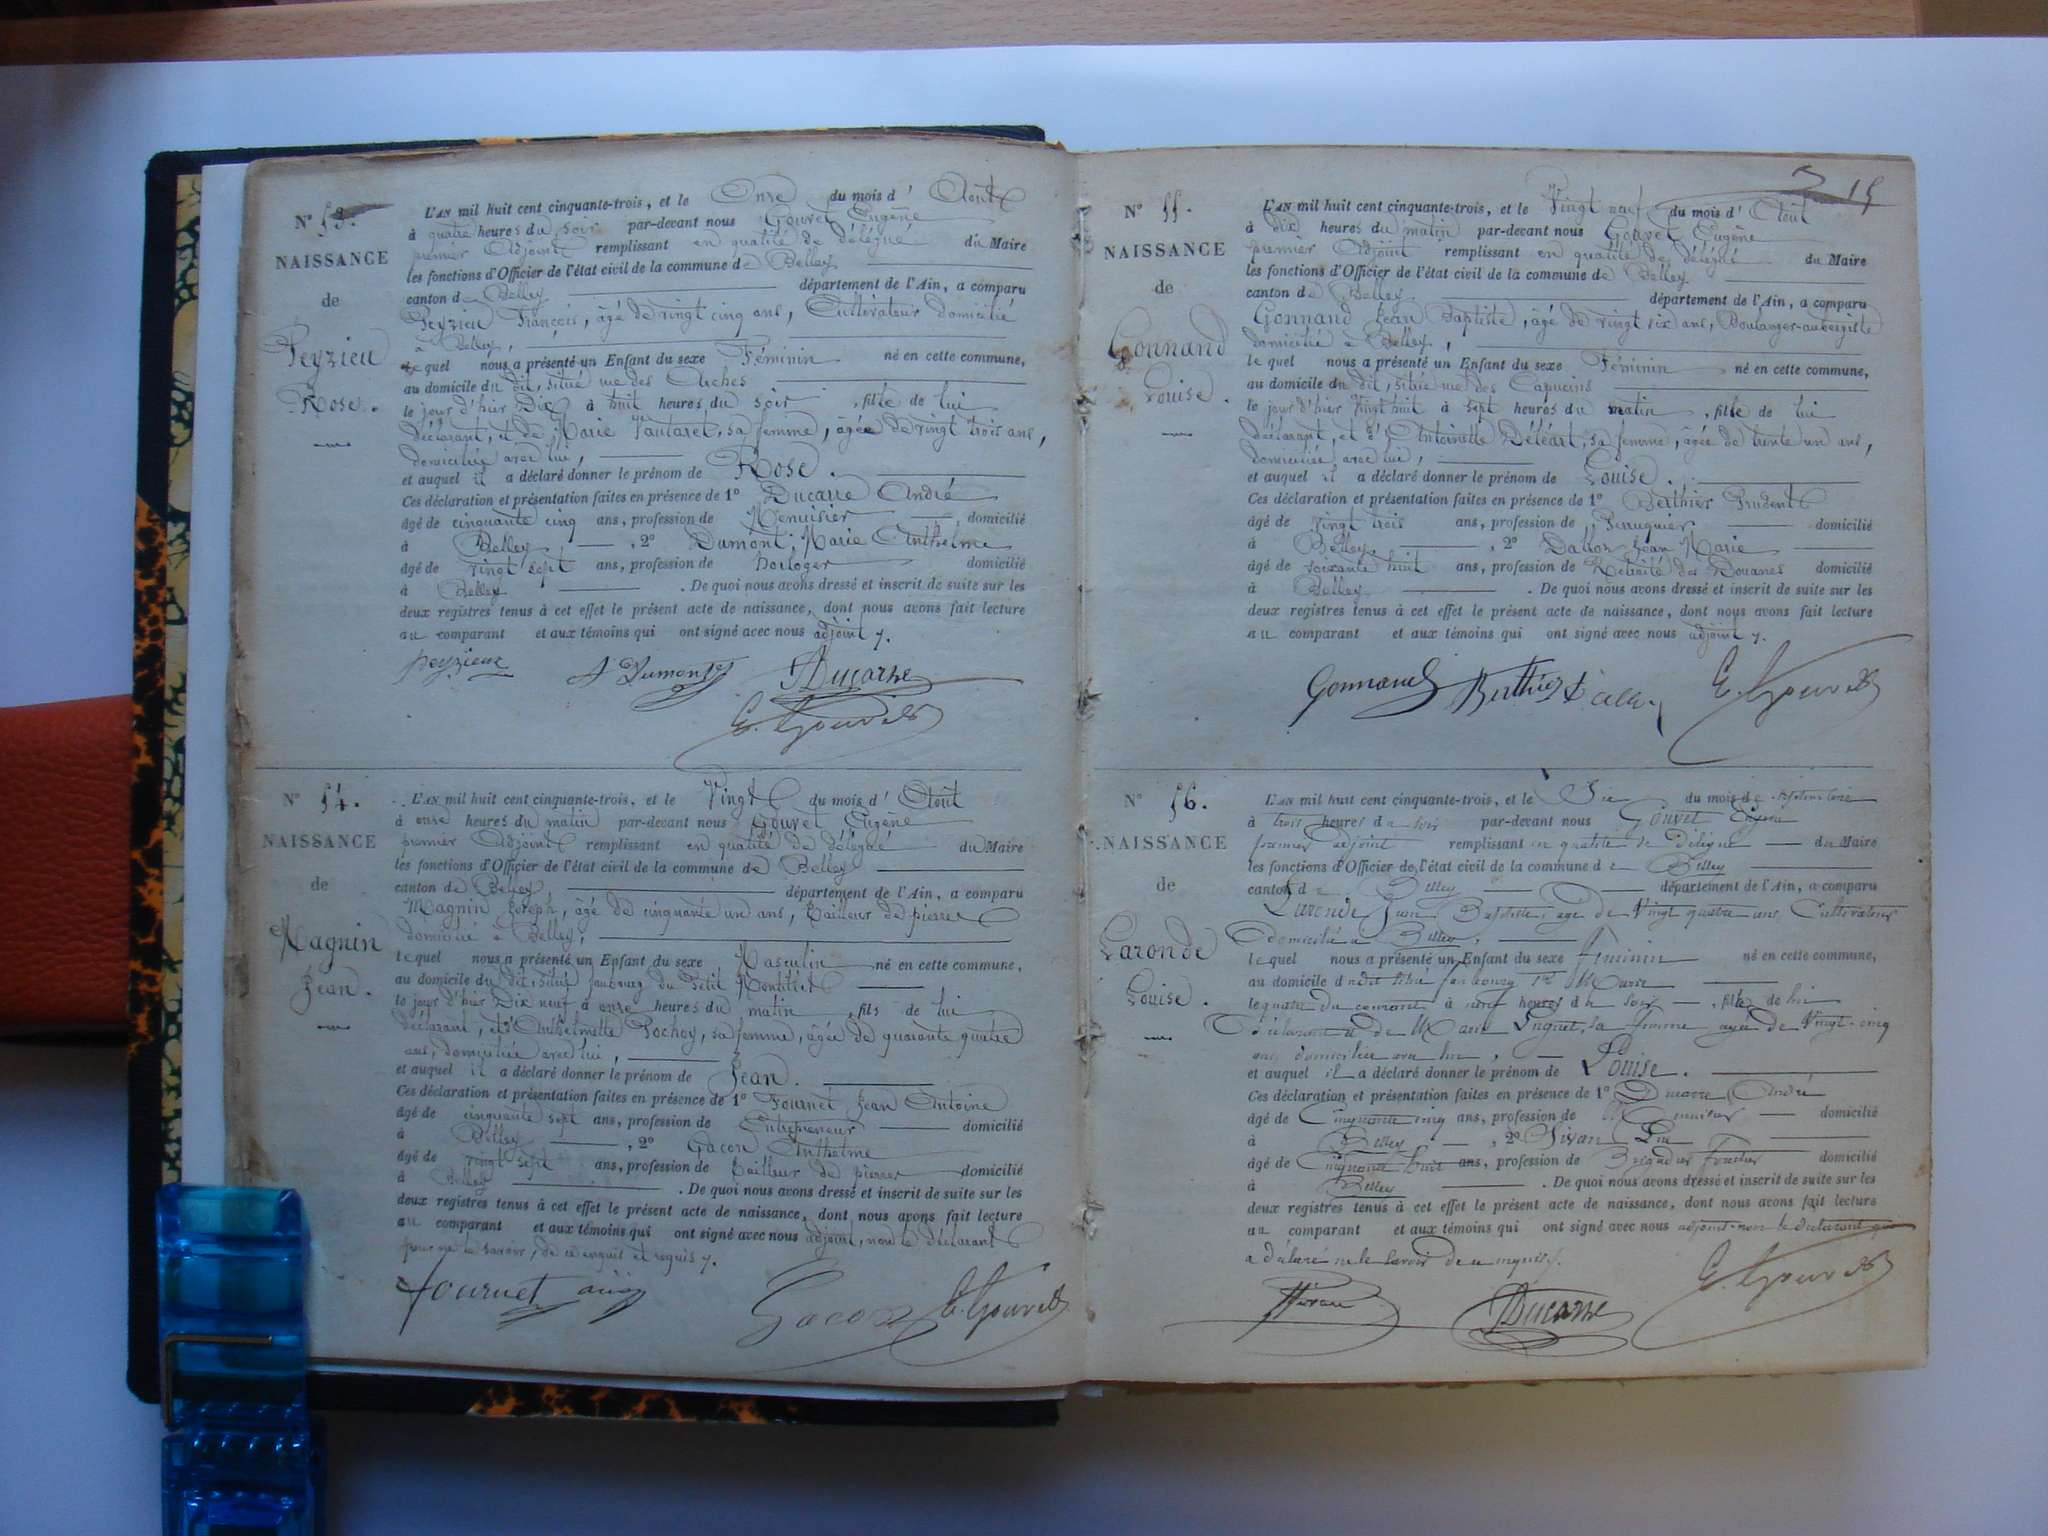 N° 53.
NAISSANCE
de
Peyzieu
Rose.
L'AN mil huit cent cinquante-trois, et le Onze du mois d' Août
à quatre heures du soir par-devant nous Gouvet Eugène
premier Adjoint remplissant en qualité de délégué du Maire
les fonctions d'Officier de l'état civil de la commune de Belley
canton de Belley département de l'Ain, a comparu
Peyzieu François, âgé de vingt cinq ans, Cultivateur domicilié
à Belley,
le quel nous a présenté un Enfant du sexe Féminin né en cette commune,
au domicile du dit, situé rue des Arches
le jour d'hier Dix à huit heures du soir, fille de lui
déclarant, et de Marie Vautaret, sa femme, âgée de vingt trois ans,
domiciliée avec lui,
et auquel il a déclaré donner le prénom de Rose.
Ces déclaration et présentation faites en présence de 1° Ducarre André
âgé de cinquante cinq ans, profession de Menuisier domicilié
à Belley, 2° Dumont, Marie Anthelme
âgé de vingt sept ans, profession de horloger domicilié
à Belley. De quoi nous avons dressé et inscrit de suite sur les
deux registres tenus à cet effet le présent acte de naissance, dont nous avons fait lecture
au comparant et aux témoins qui ont signé avec nous adjoint.
peyzieux A Dumont Ducarre
E. Gouvet
N° 54.
NAISSANCE
de
Magnin
Jean.
L'AN mil huit cent cinquante-trois, et le Vingt du mois d' Août
à onze heures du matin par-devant nous Gouvet Eugène
premier Adjoint remplissant en qualité de délégué du Maire
les fonctions d'Officier de l'état civil de la commune de Belley
canton de Belley, département de l'Ain, a comparu
Magnin Joseph, âgé de cinquante un ans, tailleur de pierre
domicilié à Belley,
le quel nous a présenté un Enfant du sexe Masculin né en cette commune,
au domicile du dit, situé faubourg du Petit
le jour d'hier Dix neuf à onze heures du matin, fils de lui
déclarant, et d'Anthelmette Pochoy, sa femme, âgée de quarante quatre
ans, domiciliée avec lui,
et auquel il a déclaré donner le prénom de Jean.
Ces déclaration et présentation faites en présence de 1° Fournet Jean Antoine
âgé de cinquante sept ans, profession de Entrepreneur domicilié
à Belley, 2° Gacon Anthelme
âgé de vingt sept ans, profession de tailleur de pierres domicilié
à Belley. De quoi nous avons dressé et inscrit de suite sur les
deux registres tenus à cet effet le présent acte de naissance, dont nous avons fait lecture
au comparant et aux témoins qui ont signé avec nous adjoint, non le déclarant
pour ne le savoir, de ce enquis et requis.
fournet Gacon E. Gouvet
15
N° 55.
NAISSANCE
de
Gonnand
Louise.
L'AN mil huit cent cinquante-trois, et le Vingt neuf du mois d' Août
à dix heures du matin par-devant nous Gouvet Eugène
premier Adjoint remplissant en qualité de délégué du Maire
les fonctions d'Officier de l'état civil de la commune de Belley
canton de Belley département de l'Ain, a comparu
Gonnand Jean Baptiste, âgé de vingt six ans, Boulanger-aubergiste
domicilié à Belley,
le quel nous a présenté un Enfant du sexe Féminin né en cette commune,
au domicile du dit, situé rue des Capucins
le jour d'hier Vingt huit à sept heures du matin, fille de lui
déclarant, et d'Antoinette Déléart, sa femme, âgée de trente un ans,
domiciliée avec lui,
et auquel il a déclaré donner le prénom de Louise.
Ces déclaration et présentation faites en présence de 1° Berthier Prudent
âgé de vingt trois ans, profession de Perruquier domicilié
à Belley, 2° Dalloz Jean Marie
âgé de soixante huit ans, profession de Retraité des Douanes domicilié
à Belley. De quoi nous avons dressé et inscrit de suite sur les
deux registres tenus à cet effet le présent acte de naissance, dont nous avons fait lecture
au comparant et aux témoins qui ont signé avec nous adjoint.
Gonnand Berthier E. Gouvet
N° 56.
NAISSANCE
de
Laronde
Louise.
L'AN mil huit cent cinquante-trois, et le Six du mois de septembre
à trois heures du soir par-devant nous Gouvet Eugène
premier adjoint remplissant en qualité de délégué du Maire
les fonctions d'Officier de l'état civil de la commune de Belley
canton de Belley département de l'Ain, a comparu
Laronde Jean Baptiste, âgé de Vingt quatre ans Cultivateur
domicilié à Belley,
le quel nous a présenté un Enfant du sexe féminin né en cette commune,
au domicile du dit situé faubourg Marie
le quatre du courant à neuf heures du soir, fille de lui
déclarant et de Marie Luguet, sa femme âgée de Vingt-cinq
ans domiciliée avec lui,
et auquel il a déclaré donner le prénom de Louise.
Ces déclaration et présentation faites en présence de 1° Ducarre André
âgé de Cinquante cinq ans, profession de Menuisier domicilié
à Belley, 2° Sivan
âgé de Cinquante huit ans, profession de Brigadier Forestier domicilié
à Belley. De quoi nous avons dressé et inscrit de suite sur les
deux registres tenus à cet effet le présent acte de naissance, dont nous avons fait lecture
au comparant et aux témoins qui ont signé avec nous adjoint non le déclarant qui
a déclaré ne le savoir de ce enquis.
Sivan Ducarre E. Gouvet